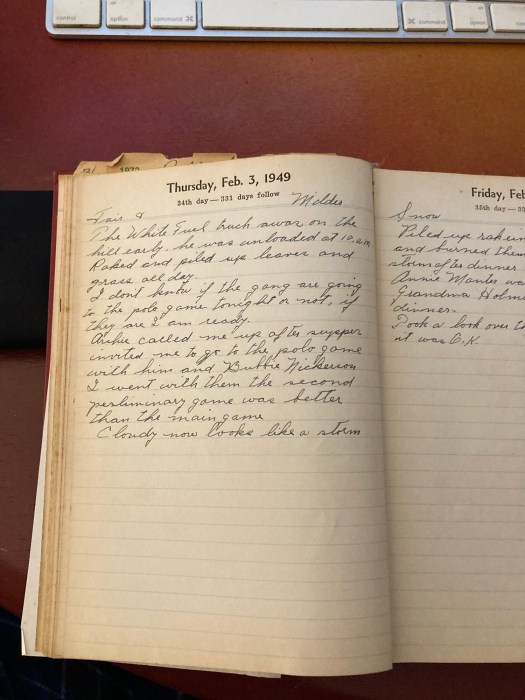 control
option
command ⌘
⌘ command
option
1979
Thursday, Feb. 3, 1949
34th day—331 days follow
Fair & Milder
The White Fuel truck awaz on the
hill early. he was unloaded at 10 a.m
Raked and piled up leaves and
grass all day.
I dont know if the gang are going
to the polo game tonight or not, if
they are I am ready.
Archie called me up after supper
invited me to go to the polo game
with him and Bubbie Nickerson
I went with them the second
perliminary game was better
than the main game
Cloudy now looks like a storm
Friday, Feb
35th day—33
Snow
Piled up
and burned them
storm after dinner
Annie Manter wa
Grandma Holm
dinner.
Took a look over th
it was O.K